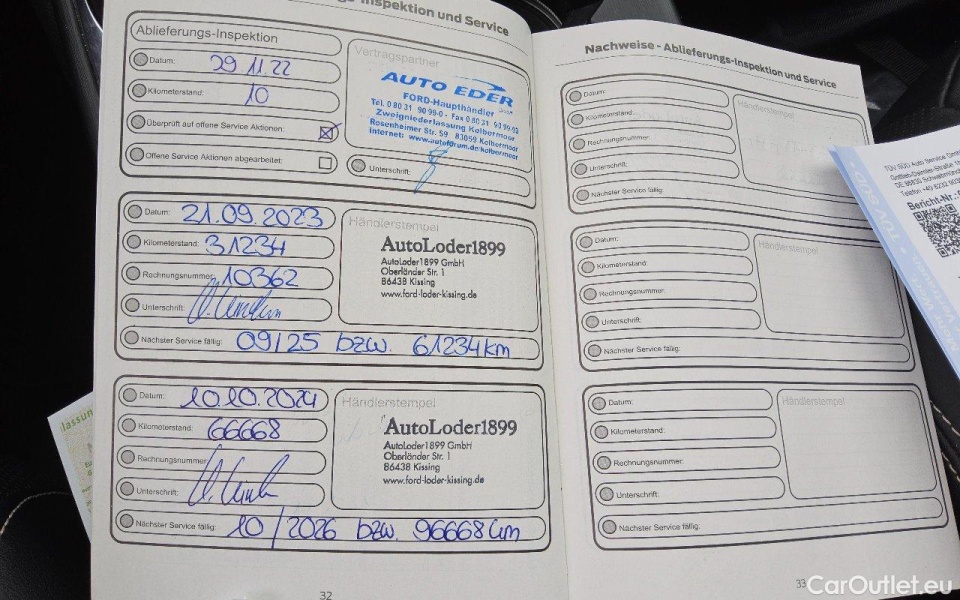 -Inspektion und Service
Ablieferungs-Inspektion
Datum: 29 11.22
Kilometerstand: 10
Überprüft auf offene Service Aktionen:
Offene Service Aktionen abgearbeitet:
Vertragspartner
AUTO EDER
FORD-Haupthändler
Tel. 0 80 31 90 99-0 - Fax 0 80 31 90 99-90
Zweigniederlassung Kolbermoor
Rosenheimer Str. 59 83059 Kolbermoor
Internet: www.autoforum.de/kolbermoor
Unterschrift:
Datum: 21.09.2023
Kilometerstand: 31234
Rechnungsnummer: 10362
Unterschrift:
Nächster Service fällig: 09/25 bzw. 61234km
Händlerstempel
AutoLoder1899
AutoLoder1899 GmbH
Oberländer Str. 1
86438 Kissing
www.ford-loder-kissing.de
Datum: 10.10.2024
Kilometerstand: 66668
Rechnungsnummer:
Unterschrift:
Nächster Service fällig: 10/2026 bzw. 96668km
Händlerstempel
AutoLoder1899
AutoLoder1899 GmbH
Oberländer Str. 1
86438 Kissing
www.ford-loder-kissing.de
32
Nachweise - Ablieferungs-Inspektion und Service
Datum:
Kilometerstand:
Rechnungsnummer:
Unterschrift:
Nächster Service fällig:
Händlerstempel
Datum:
Kilometerstand:
Rechnungsnummer:
Unterschrift:
Nächster Service fällig:
Händlerstempel
Datum:
Kilometerstand:
Rechnungsnummer:
Unterschrift:
Nächster Service fällig:
Händlerstempel
33
TÜV SÜD Auto Service
Gottlieb-Daimler-Straße
Bericht-Nr.:
CarOutlet.eu